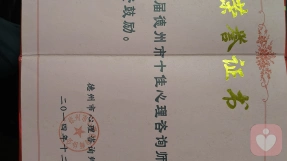 荣誉证书
届德州市十佳心理咨询师
鼓励。
德州市心理咨询师
二〇一四年十二